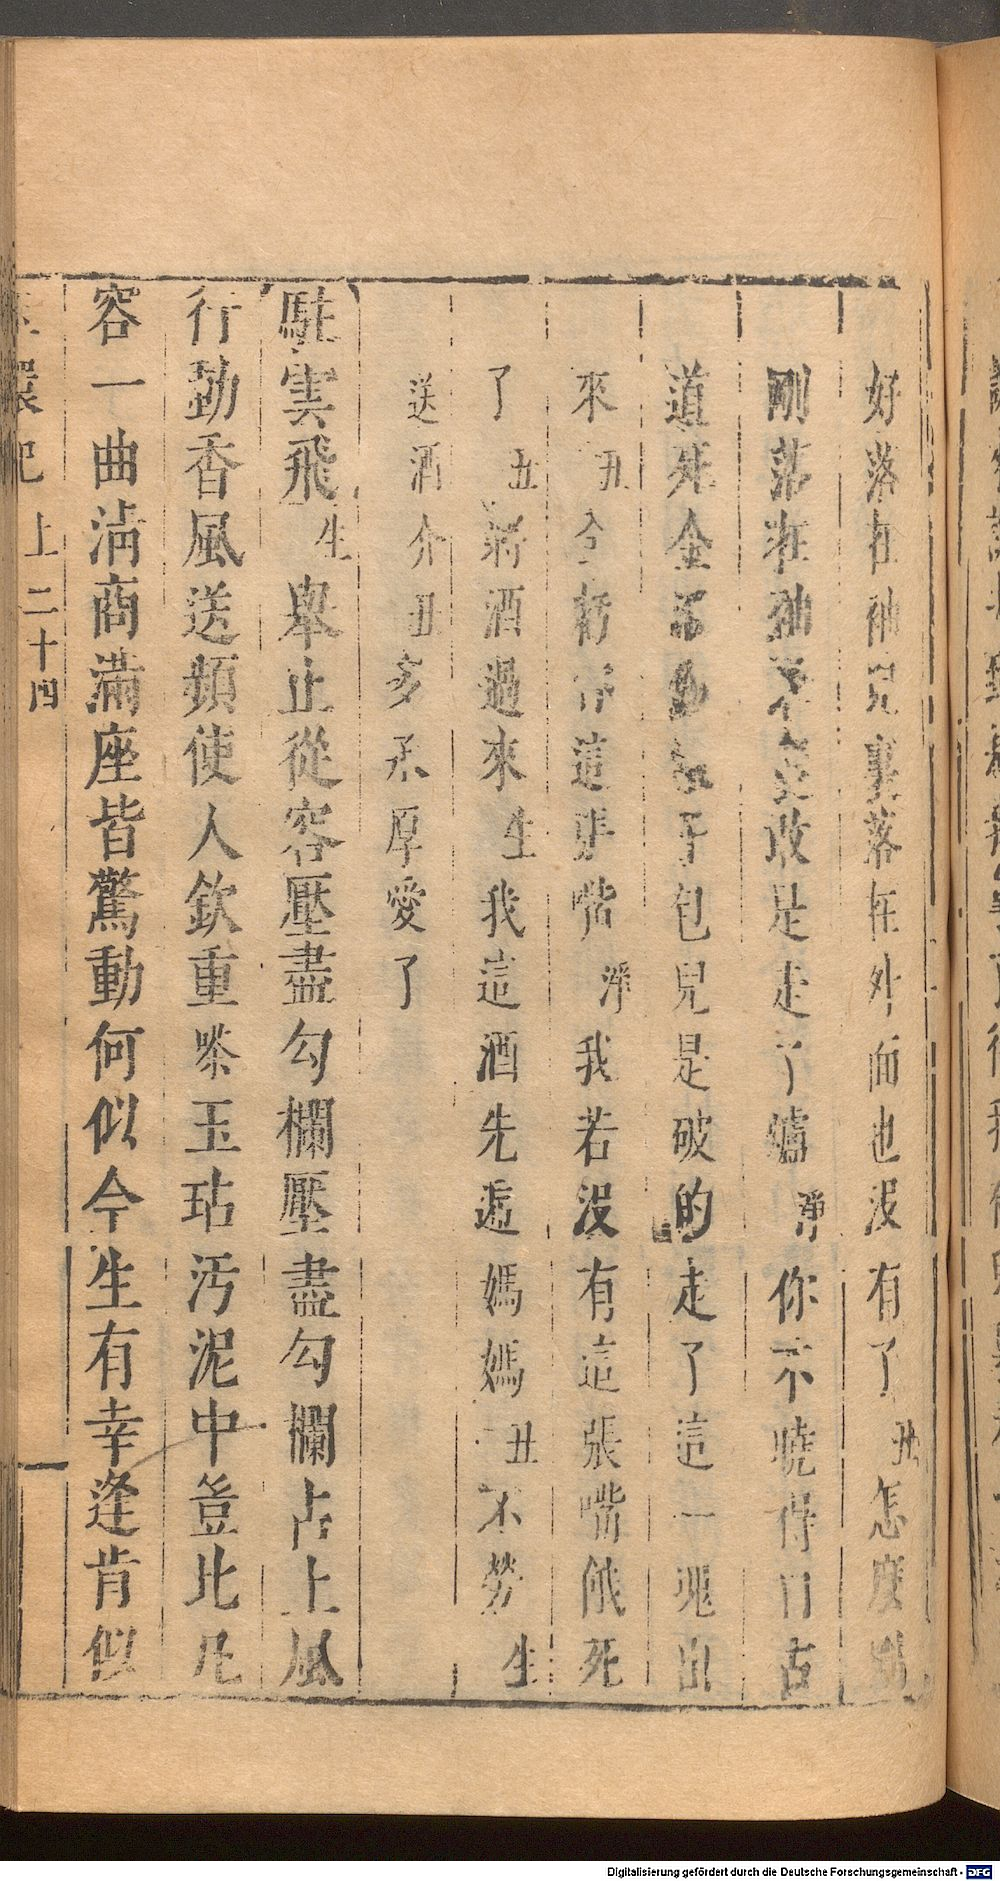 好落在袖兒裏落在外面也沒有了丑怎麽
剛落在袖敢是走了爐淨你不曉得自古
道死金包兒是破的走了這一塊出
來丑這張嘴淨我若沒有這張嘴餓死
了丑將酒過來生我這酒先遞媽媽丑不勞生
送酒介丑多承厚愛了
駐雲飛生舉止從容壓盡勾欄壓盡勾欄占上風
行動香風送頻使人欽重嗏玉玷污泥中豈比凡
容一曲清商滿座皆驚動何似今生有幸逢肯似
環記上二十四
Digitalisierung gefördert durch die Deutsche Forschungsgemeinschaft - DFG